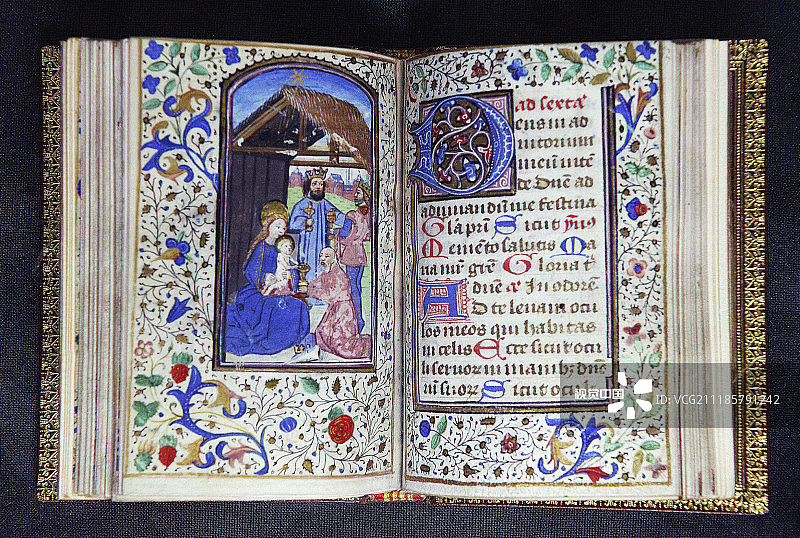 ad sextā
Deus in ad
iutorium
meū inte
de Dñe ad
adiuuandū me festina
Gla pr̄i Sicut ym̄s
Memēto salutis Ma
ria mr̄ grē Gloria t
dñe ā In odore
AD te leuaui ocu
los meos qui habitas
in celis Ecce sicut ocu
li seruorum in manibꝫ dn̄
nr̄suoꝝ Sicut ocu
视觉中国
ID:VCG211185791242